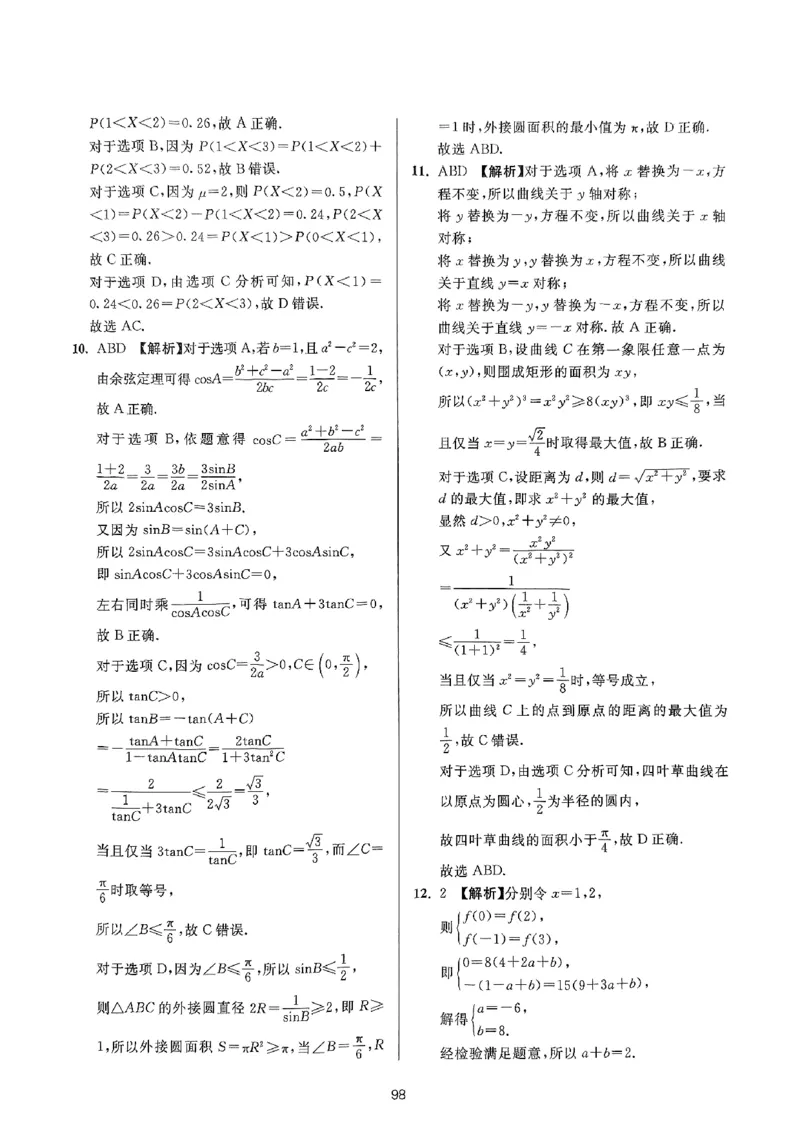 P(1<X<2)=0.26,故 A 正确.
对于选项 B,因为 P(1<X<3)=P(1<X<2)+
P(2<X<3)=0.52,故 B 错误.
对于选项 C,因为 μ=2,则 P(X<2)=0.5,P(X
<1)=P(X<2)-P(1<X<2)=0.24,P(2<X
<3)=0.26>0.24=P(X<1)>P(0<X<1),
故 C 正确.
对于选项 D,由选项 C 分析可知,P(X<1)=
0.24<0.26=P(2<X<3),故 D 错误.
故选 AC.
10. ABD 【解析】对于选项 A,若 b=1,且 a²-c²=2,
由余弦定理可得 cosA=(b²+c²-a²)/2bc=(1-2)/2c=-1/2c,
故 A 正确.
对于选项 B,依题意得 cosC=(a²+b²-c²)/2ab=
(1+2)/2a=3/2a=3b/2a=3sinB/2sinA,
所以 2sinAcosC=3sinB.
又因为 sinB=sin(A+C),
所以 2sinAcosC=3sinAcosC+3cosAsinC,
即 sinAcosC+3cosAsinC=0,
左右同时乘 1/cosAcosC,可得 tanA+3tanC=0,
故 B 正确.
对于选项 C,因为 cosC=3/2a>0,C∈(0,π/2),
所以 tanC>0,
所以 tanB=-tan(A+C)
=-(tanA+tanC)/(1-tanAtanC)=2tanC/(1+3tan²C)
=2/(1/tanC+3tanC)≤2/2√3=√3/3,
当且仅当 3tanC=1/tanC,即 tanC=√3/3,而∠C=
π/6时取等号,
所以∠B≤π/6,故 C 错误.
对于选项 D,因为∠B≤π/6,所以 sinB≤1/2,
则△ABC 的外接圆直径 2R=1/sinB≥2,即 R≥
1,所以外接圆面积 S=πR²≥π,当∠B=π/6,R
=1 时,外接圆面积的最小值为 π,故 D 正确.
故选 ABD.
11. ABD 【解析】对于选项 A,将 x 替换为-x,方
程不变,所以曲线关于 y 轴对称;
将 y 替换为-y,方程不变,所以曲线关于 x 轴
对称;
将 x 替换为 y,y 替换为 x,方程不变,所以曲线
关于直线 y=x 对称;
将 x 替换为-y,y 替换为-x,方程不变,所以
曲线关于直线 y=-x 对称.故 A 正确.
对于选项 B,设曲线 C 在第一象限任意一点为
(x,y),则围成矩形的面积为 xy,
所以(x²+y²)³=x²y²≥8(xy)³,即 xy≤1/8,当
且仅当 x=y=√2/4时取得最大值,故 B 正确.
对于选项 C,设距离为 d,则 d=√(x²+y²),要求
d 的最大值,即求 x²+y² 的最大值,
显然 d>0,x²+y²≠0,
又 x²+y²=x²y²/(x²+y²)²
=1/((x²+y²)(1/x²+1/y²))
≤1/(1+1)²=1/4,
当且仅当 x²=y²=1/8时,等号成立,
所以曲线 C 上的点到原点的距离的最大值为
1/2,故 C 错误.
对于选项 D,由选项 C 分析可知,四叶草曲线在
以原点为圆心,1/2为半径的圆内,
故四叶草曲线的面积小于π/4,故 D 正确.
故选 ABD.
12. 2 【解析】分别令 x=1,2,
则{f(0)=f(2),
f(-1)=f(3),
即{0=8(4+2a+b),
-(1-a+b)=15(9+3a+b),
解得{a=-6,
b=8.
经检验满足题意,所以 a+b=2.
98